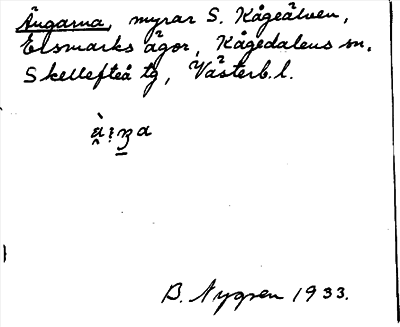 Ängarna, myrar S. Kågeälven,
Ersmarks ägor, Kågedalens sn.
Skellefteå tg, Västerb. l.
B. Nygren 1933.